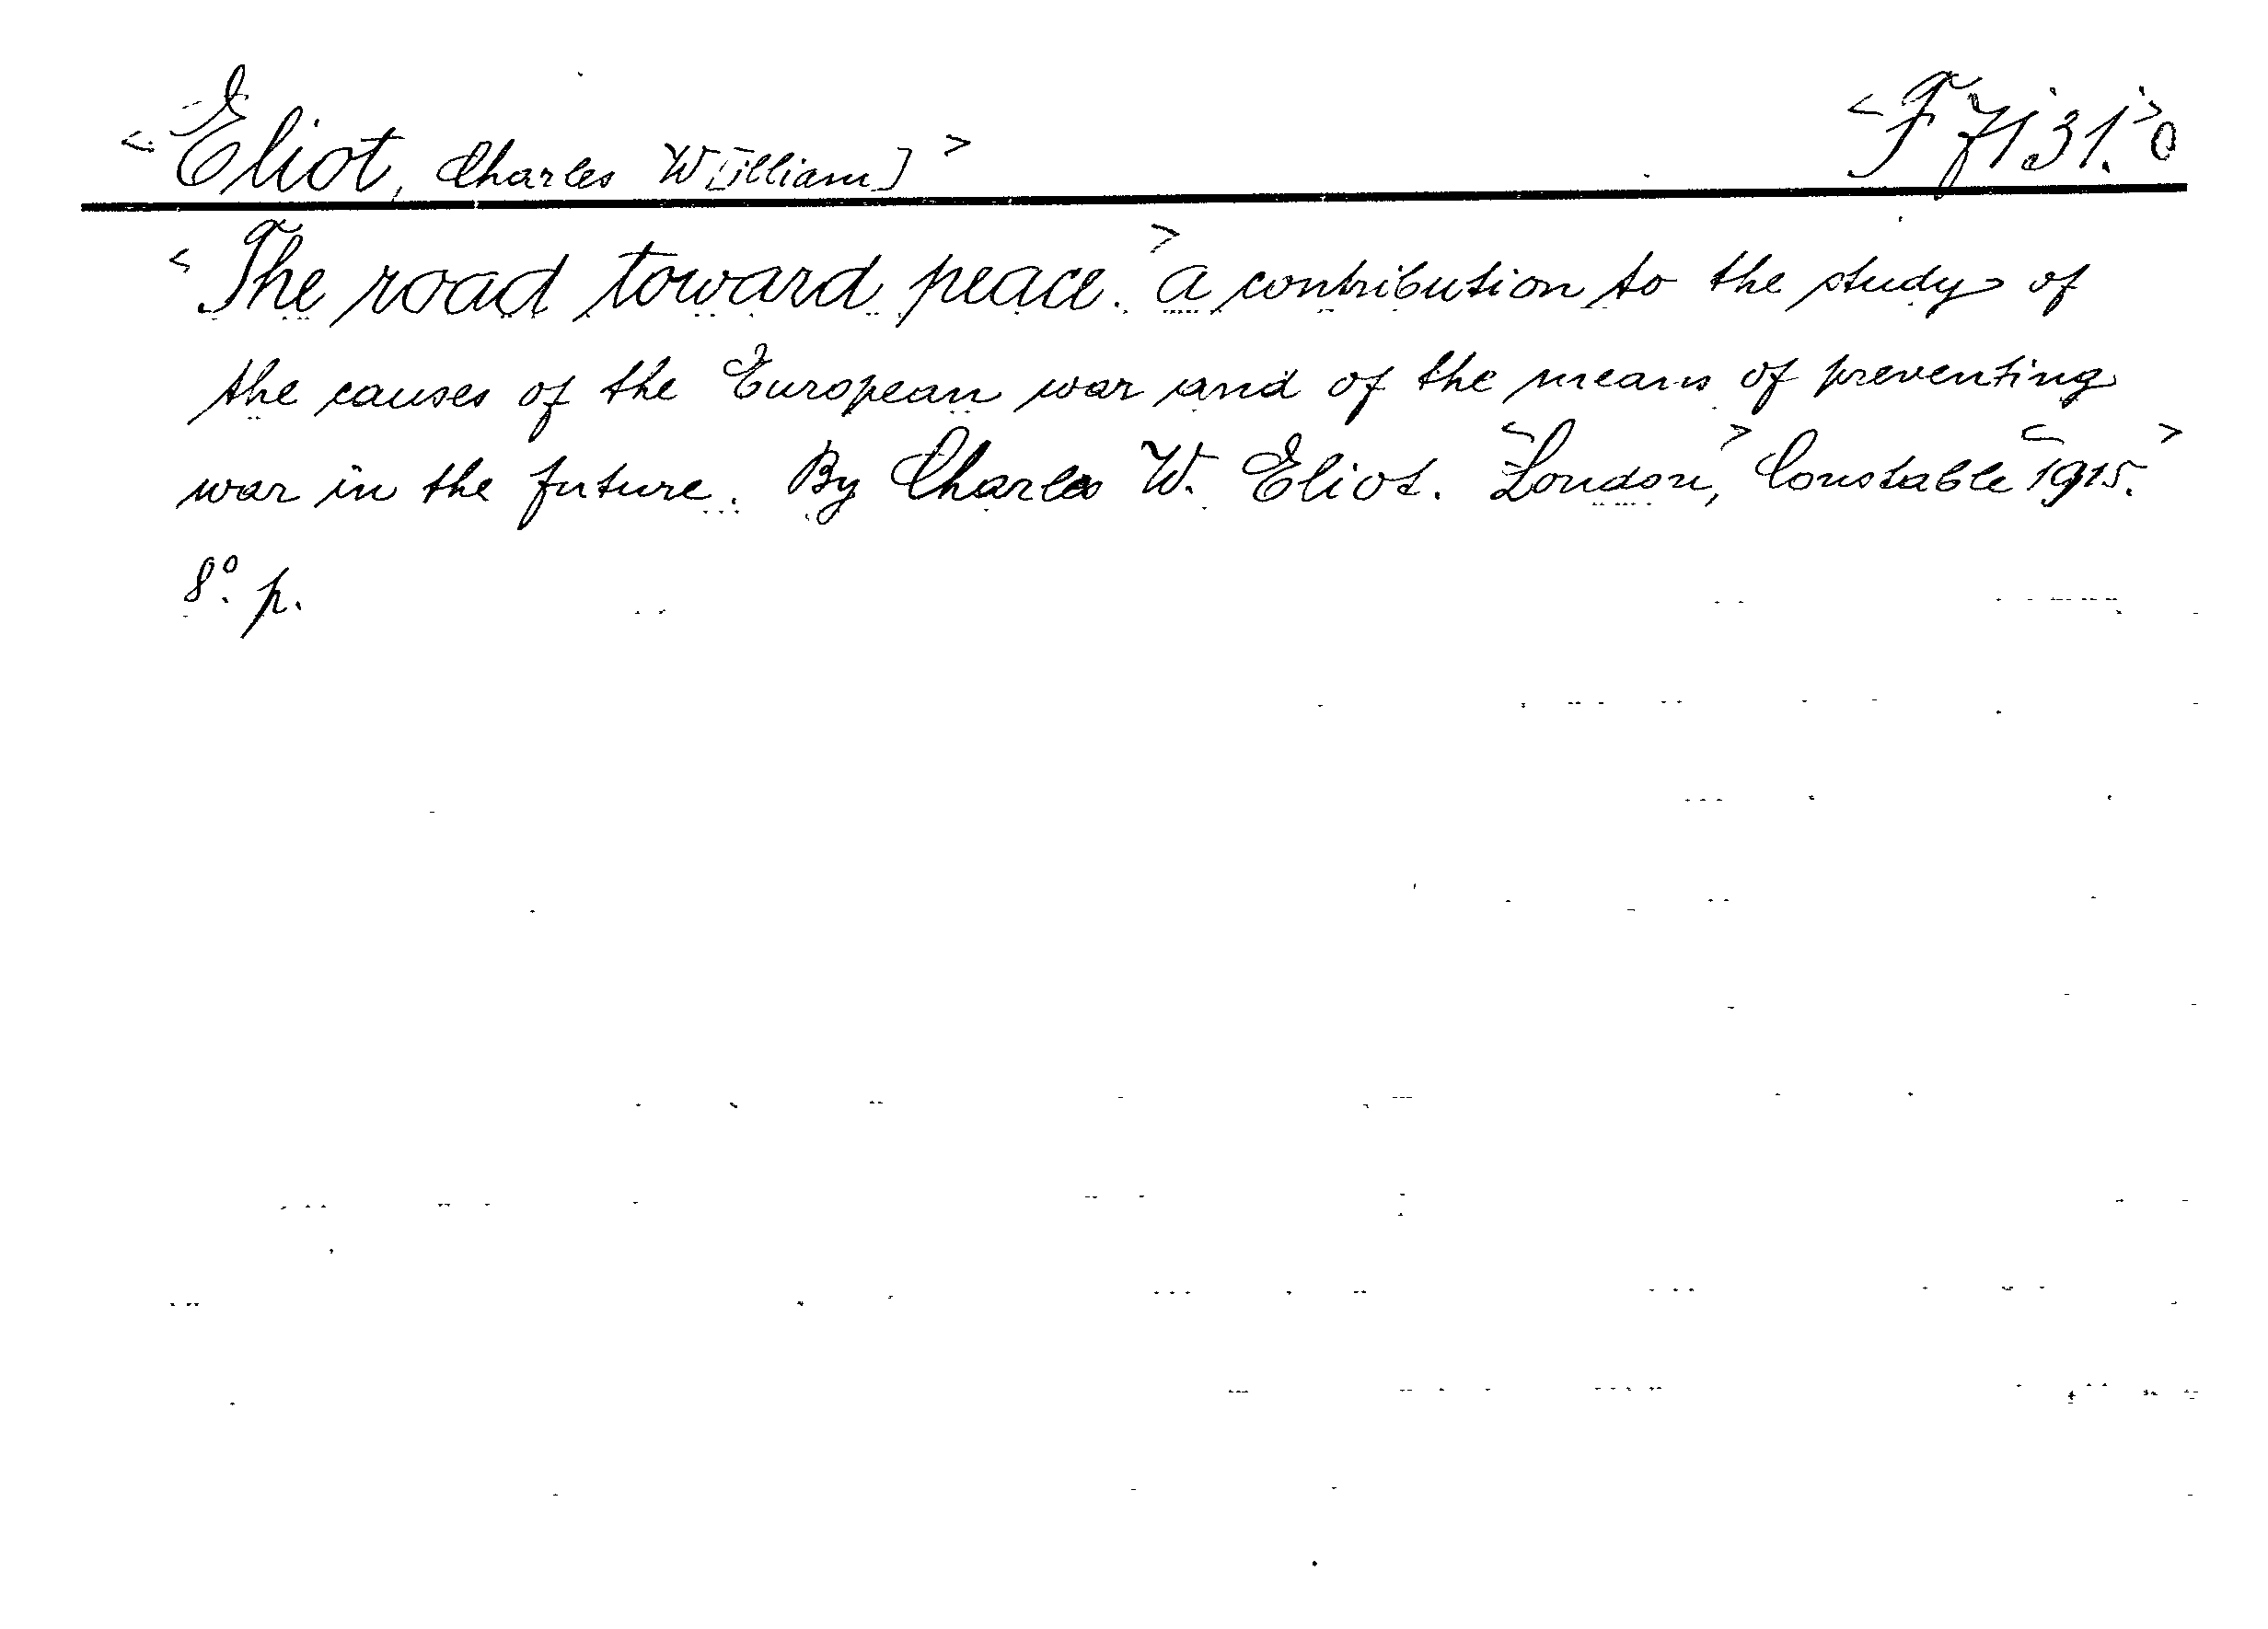 <Eliot, Charles W[illiam]> <F 7131.>0
<The road toward peace.> a contribution to the study of
the causes of the European war and of the means of preventing
war in the future. By Charles W. Eliot. <London,> Constable <1915.>
8°. p.